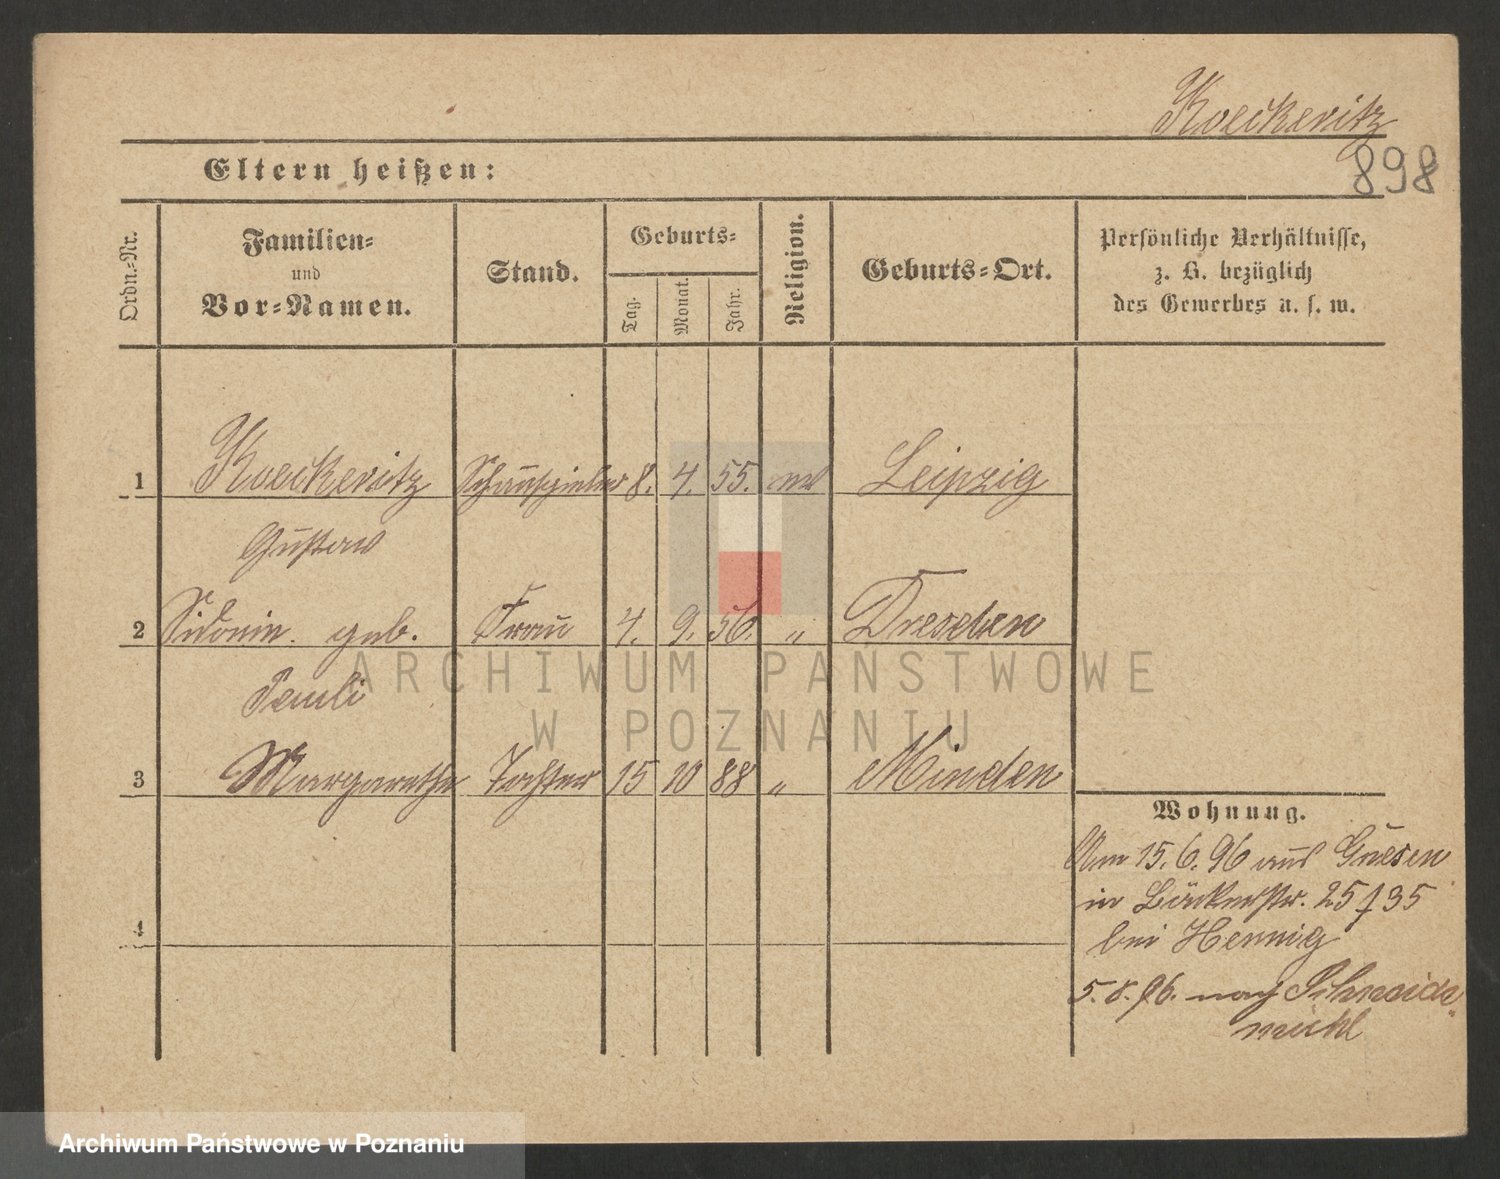 Koeckeritz
898
Eltern heißen:
Ordn.-Nr.
Familien-
und
Vor-Namen.
Stand.
Geburts-
Tag.
Monat.
Jahr.
Religion.
Geburts-Ort.
Persönliche Verhältnisse,
z. B. bezüglich
des Gewerbes u. s. w.
1 Koeckeritz Schauspieler 8. 4. 55. Leipzig
Gustav
2 Sidonie geb. Frau 4. 9. 56. " Dresden
3 Margarethe Tochter 15 10 88 " Minden
Wohnung.
Am 15.6.96 aus Gnesen
in Bäckerstr. 25 f 35
bei Hennig
5.8.96. nach Schneide-
mühl
4
ARCHIWUM PAŃSTWOWE
W POZNANIU
Archiwum Państwowe w Poznaniu